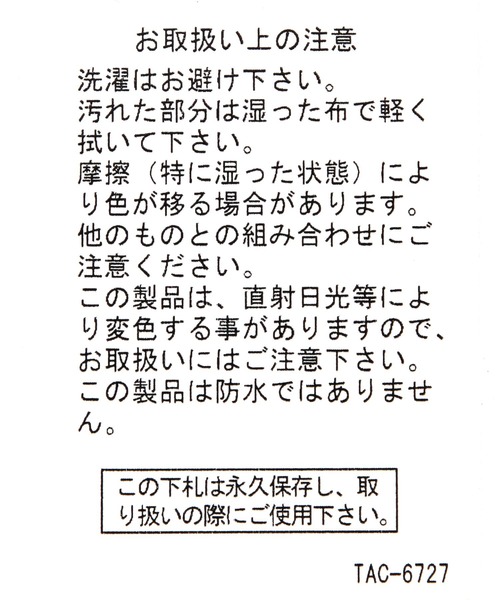 お取扱い上の注意
洗濯はお避け下さい。
汚れた部分は湿った布で軽く
拭いて下さい。
摩擦（特に湿った状態）によ
り色が移る場合があります。
他のものとの組み合わせにご
注意ください。
この製品は、直射日光等によ
り変色する事がありますので、
お取扱いにはご注意下さい。
この製品は防水ではありませ
ん。
この下札は永久保存し、取
り扱いの際にご使用下さい。
TAC-6727